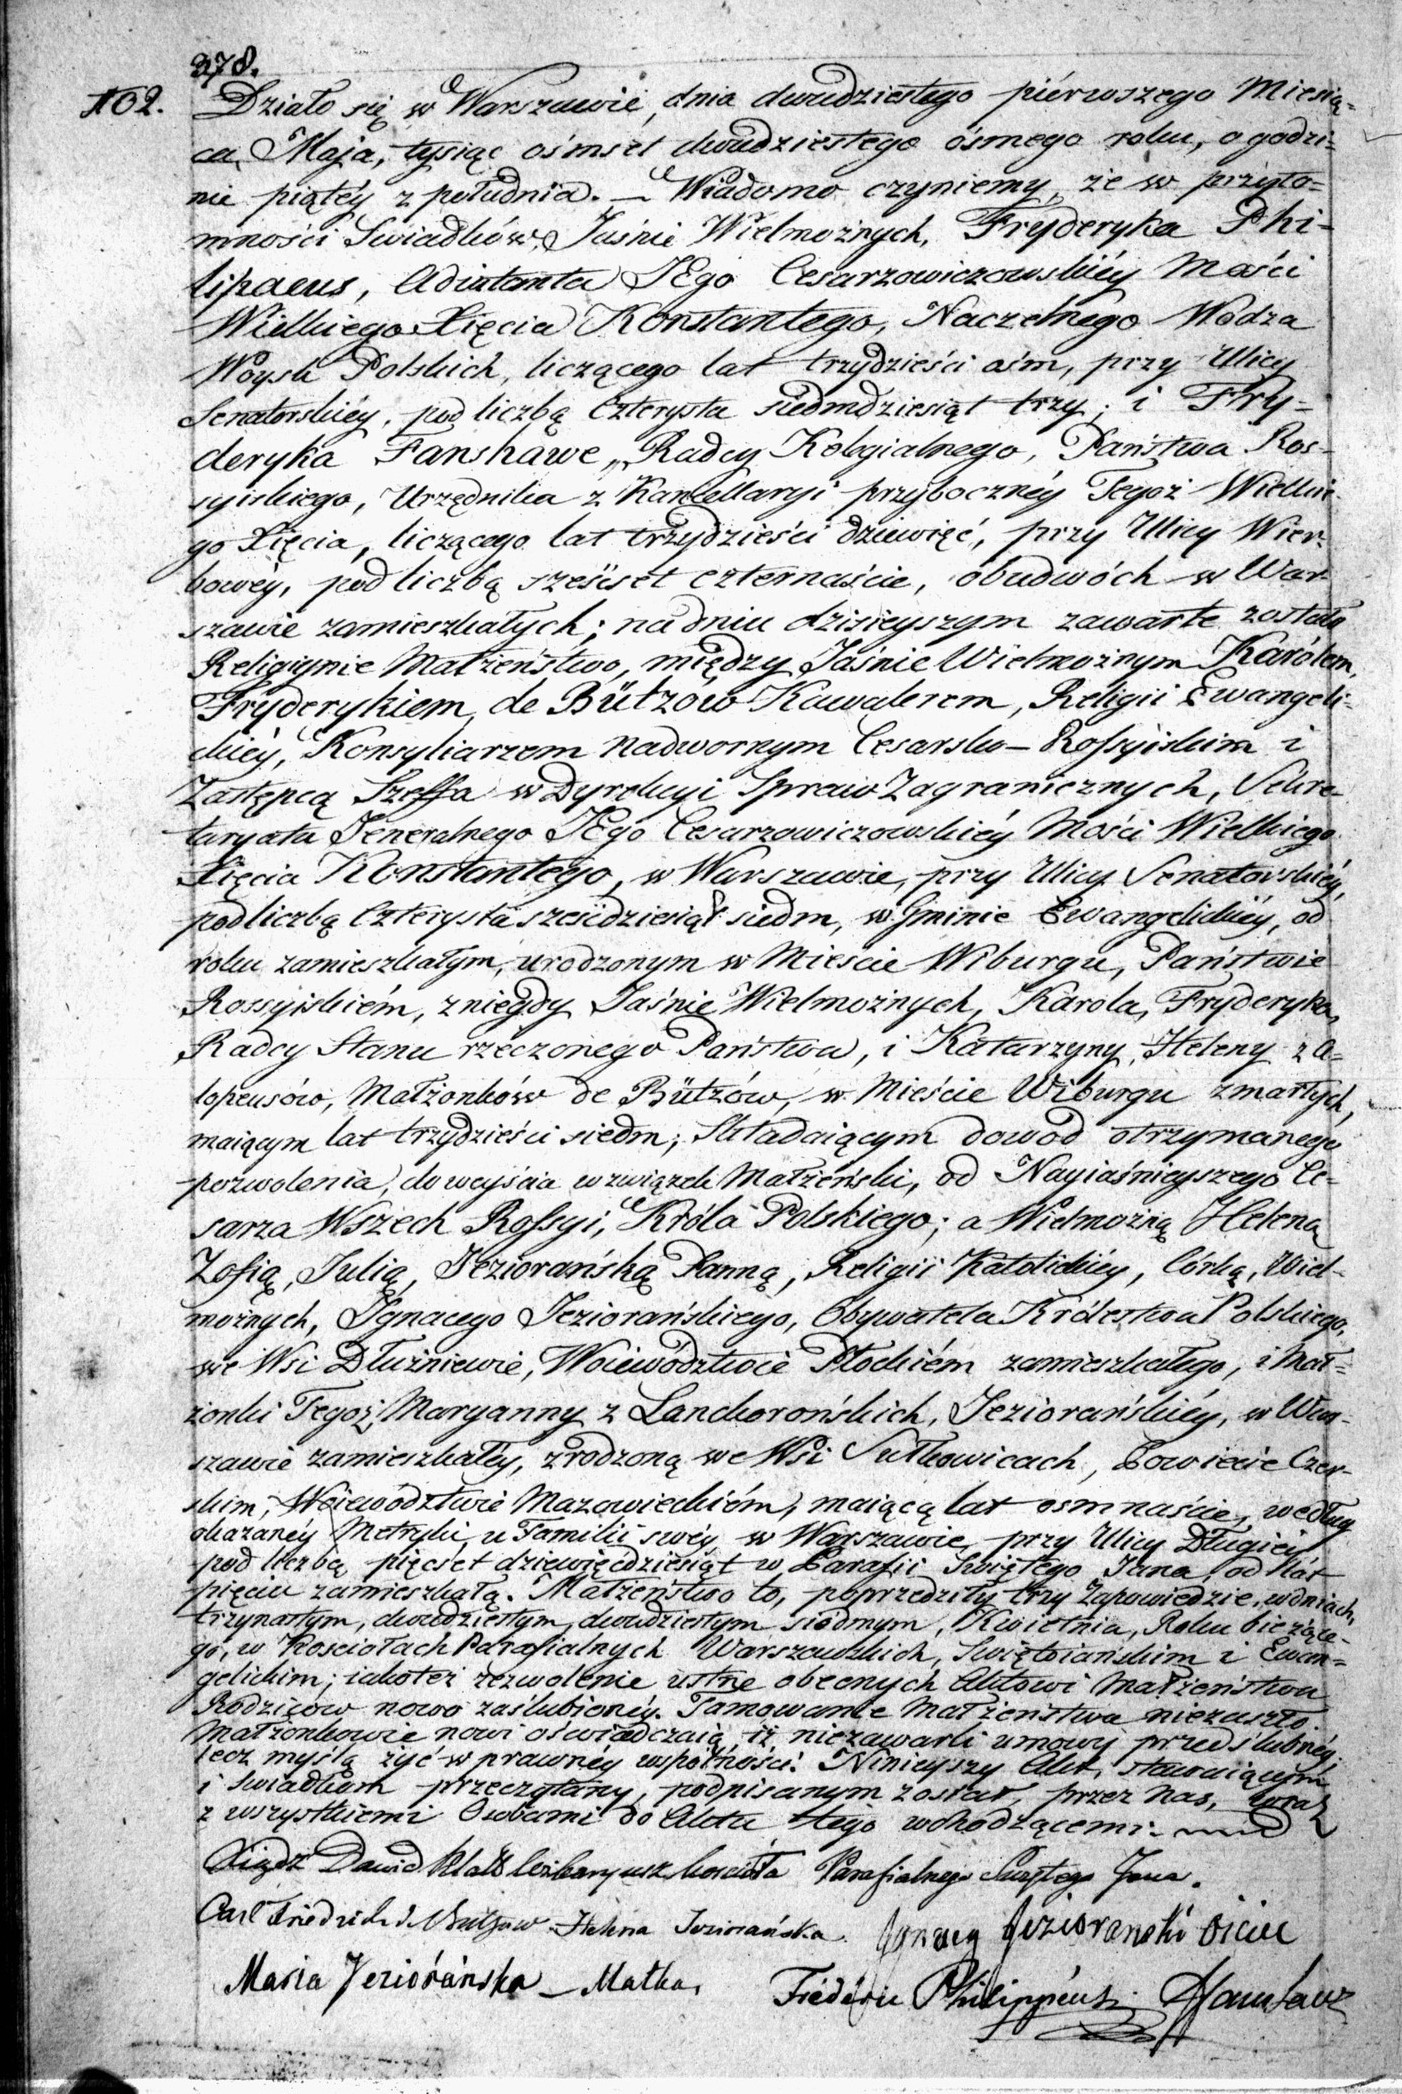 278.
102. Działo się w Warszawie, dnia dwudziestego piérwszego Miesią-
ca Maja, tysiąc ośmset dwudziestego ósmego roku, o godzi-
nie piątéy z południa. — Wiadomo czyniemy, że w przyto-
mności Swiadków, Jaśnie Wielmożnych, Fryderyka Phi-
lipaeus, Adiutanta JEgo Cesarzowiczowskiéy Mości
Wielkiego Xięcia Konstantego, Naczelnego Wodza
Woysk Polskich, liczącego lat trzydzieści ośm, przy Ulicy
Senatorskiéy, pod liczbą Czterysta siedmdziesiąt trzy; i Fry-
deryka Fanshawe, Radcy Kolegialnego, Państwa Ros-
syiskiego, Urzędnika z Kancellaryi przybocznéy Tegoż Wielkie-
go Xięcia, liczącego lat trzydzieści dziewięć, przy Ulicy Wierz-
bowéy, pod liczbą sześćset czternaście, óbudwóch w War-
szawie zamieszkałych; na dniu dzisieyszym zawarte zostało
Religiynie Małżeństwo, między Jaśnie Wielmożnym Karólem,
Fryderykiem, de Bützow Kawalerem, Religii Ewangeli-
ckiéy, Konsyliarzem Nadwornym Cesarsko-Rossyiskim i
Zastępcą Szeffa w Dyrekcyi Spraw Zagranicznych, Sekre-
taryatu Jeneralnego JEgo Cesarzowiczowskiéy Mości Wielkiego
Xięcia Konstantego, w Warszawie, przy Ulicy Senatorskiéy,
pod liczbą Czterysta sześćdziesiąt siedm, w Gminie Ewangelickiéy, od
roku zamieszkałym, urodzonym w Mieście Wiburgu, Państwie
Rossyiskiém, z niegdy Jaśnie Wielmożnych, Karola, Fryderyka,
Radcy Stanu rzeczonego Państwa, i Katarzyny, Heleny z A-
lopeusów, Małżonków de Bützów, w Mieście Wiburgu zmarłych,
maiącym lat trzydzieści siedm; Składaiącym dowód otrzymanego
pozwolenia, do weyścia w związek Małżeński, od Nayiaśnieyszego Ce-
sarza Wszech Rossyi, Króla Polskiego; a Wielmożną Heleną
Zofią, Julią, Jeziorańską Panną, Religii Katolickiéy, Córką, Wiel-
możnych, Ignacego Jeziorańskiego, Obywatela Królestwa Polskiego,
we Wsi Dłużniewie, Woiewództwie Płockiém zamieszkałego, i Mał-
żonki Tegoż, Maryanny z Lanckorońskich, Jeziorańskiéy, w War-
szawie zamieszkałéy, zrodzoną we Wsi Sułkowicach, Powiecie Czer-
skim, Woiewództwie Mazowieckiém, maiącą lat ośmnaście, według
okazanéy Metryki, u Familii swéy w Warszawie, przy Ulicy Długiéy
pod liczbą pięćset dziewięćdziesiąt w Parafii Swiętego Jana od lat
pięciu zamieszkałą. Małżeństwo to, poprzedziły trzy Zapowiedzie, w dniach,
trzynastym, dwudziestym, dwudziestym siódmym, Kwietnia, Roku bieżące-
go, w Kościołach Parafialnych Warszawskich, Swiętoiańskim i Ewan-
gelickim; iakoteż zezwolenie ustne obecnych Aktowi Małżeństwa
Rodziców nowo zaślubionéy. Tamowanie Małżeństwa niezaszło.
Małżonkowie nowi oświadczaią, iż niezawarli umowy przedślubnéy,
lecz myślą żyć w prawney wspólności. Ninieyszy Akt, stawaiącym
i Swiadkom przeczytany, podpisanym został, przez Nas, wraz
z wszystkiemi Osobami do Aktu tego wchodzącemi.
Xiądz Dawid Wikaryusz kościoła Parafialnego Swiętego Jana.
Carl Friedrich d Bützow Helena Jeziorańska Ignacy Jeziorański Oiciec
Maria Jeziórańska – Matka, Fréderic Philippéus. Fanshawe